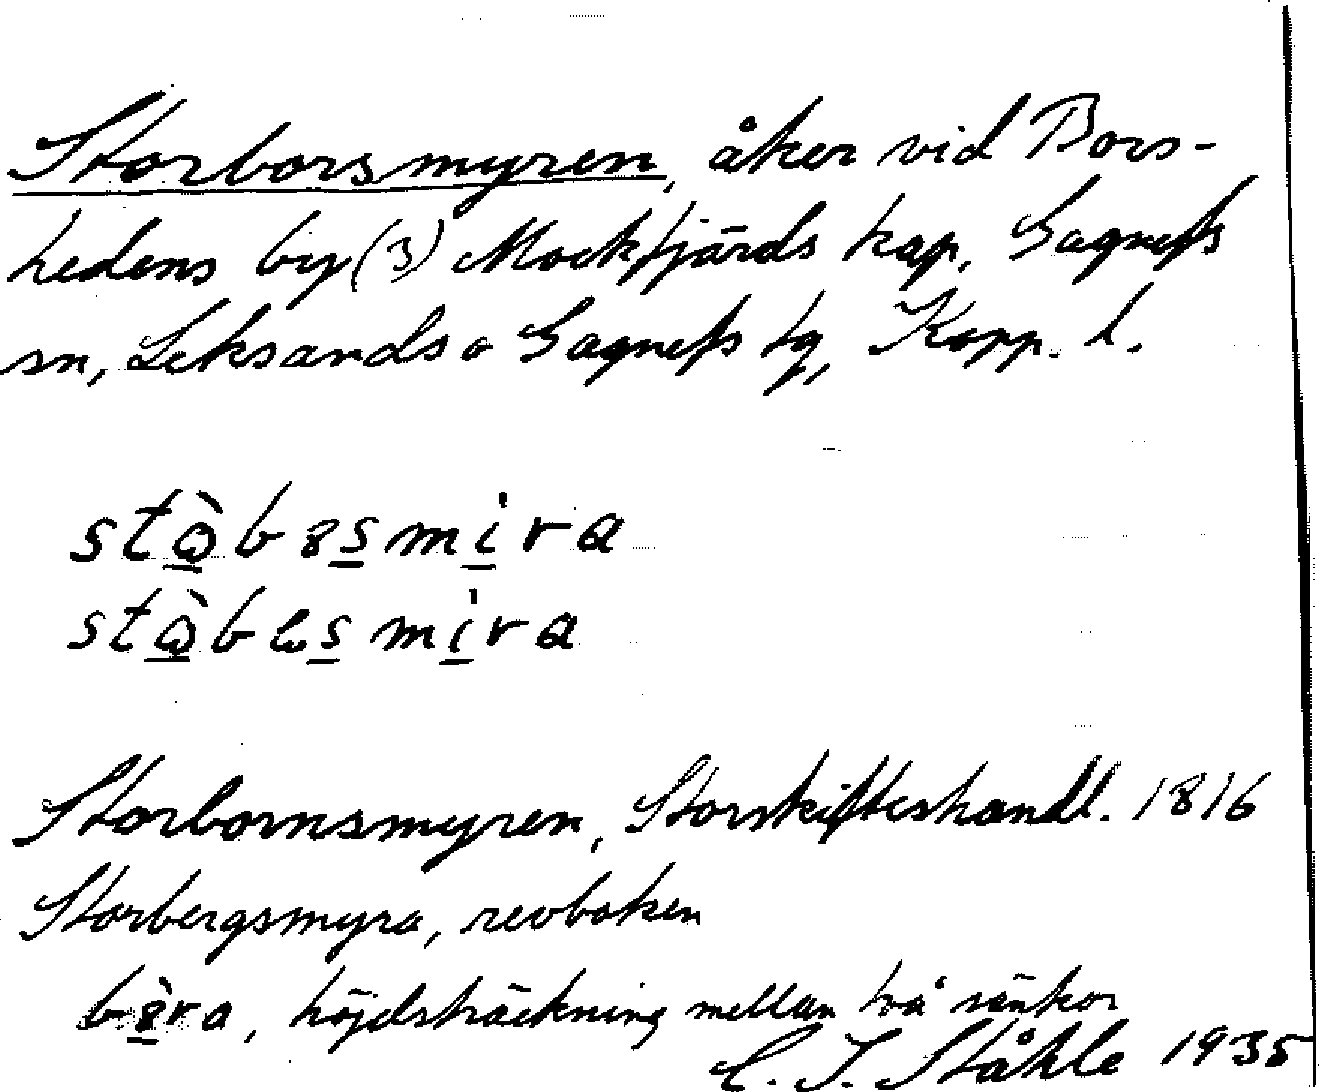 Storborsmyren, åker vid Bors-
hedens by (3) Mockfjärds kap, Gagnefs
sn, Leksands o Gagnefs tg, Kopp. l.
Storbornsmyren, Storskifteshandl. 1816
Storbergsmyra, revboken
höjdsträckning mellan två sänkor
C. I. Ståhle 1935